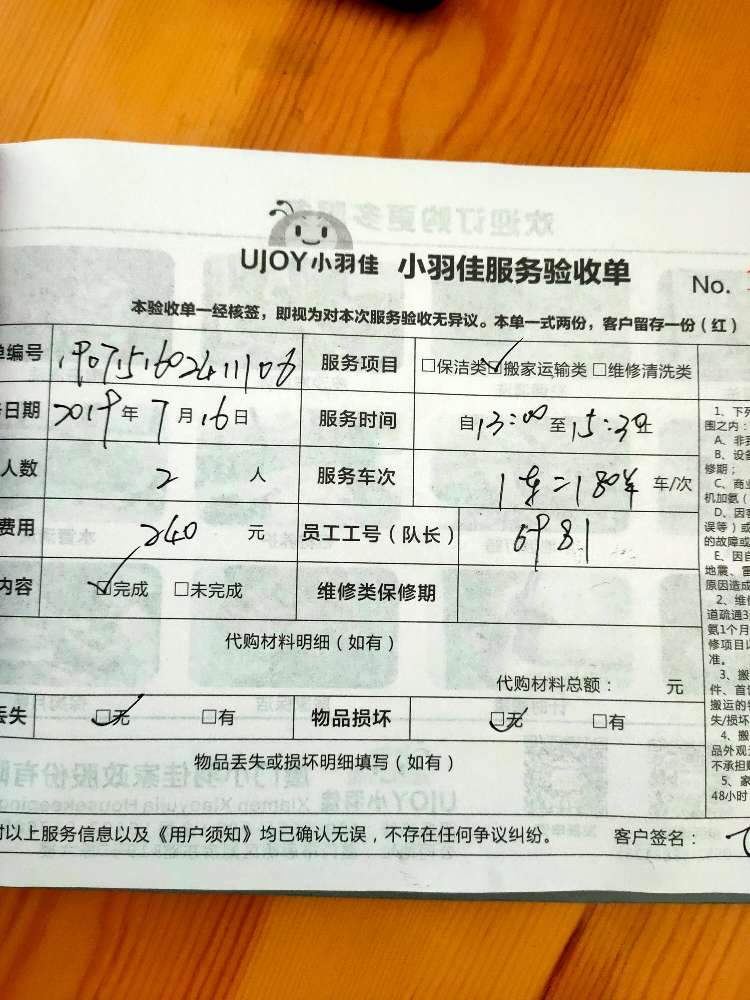 UJOY小羽佳 小羽佳服务验收单
No.
本验收单一经核签，即视为对本次服务验收无异议。本单一式两份，客户留存一份（红）
单编号 1907151602411106 服务项目 □保洁类 ☑搬家运输类 □维修清洗类
日期 2019年7月16日 服务时间 自13:00至15:30止
人数 2 人 服务车次 车/次
费用 240 元 员工工号（队长） 6981
内容 ☑完成 □未完成 维修类保修期
代购材料明细（如有）
代购材料总额： 元
丢失 ☑无 □有 物品损坏 ☑无 □有
物品丢失或损坏明细填写（如有）
对以上服务信息以及《用户须知》均已确认无误，不存在任何争议纠纷。 客户签名：
1、下列
围之内：
A、非
B、设备
修期；
C、商业
机加氨（
D、因客
误等）或
的故障或
E、因自
地震、雷
原因造成
2、维修
道疏通3
氨1个月
修项目以
准。
3、搬
件、首
搬运的物
失/损坏
4、搬
品外观
不承担
5、家
48小时